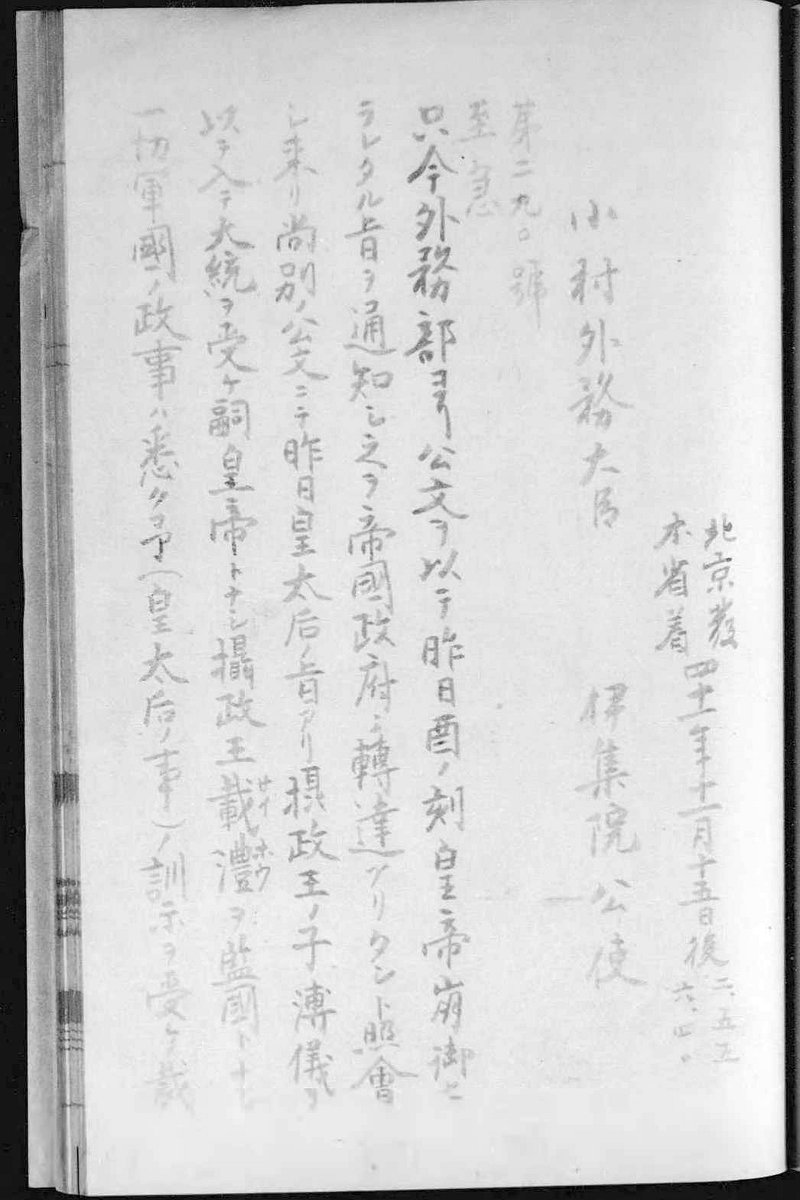 北京發 四十一年十一月十五日後 二、五五
本省着 六、四〇
小村外務大臣 伊集院公使
第二九〇號
至急
只今外務部ヨリ公文ヲ以テ昨日酉ノ刻皇帝崩御セ
ラレタル旨ヲ通知シ之ヲ帝國政府ニ轉達アリタシト照會
シ来リ尚別ノ公文ニテ昨日皇太后ノ旨アリ摂政王ノ子溥儀ヲ
以テ入テ大統ヲ受ケ嗣皇帝トナシ攝政王載灃ヲ監國トナシ
サイホウ
一切軍國ノ政事ハ悉ク予(皇太后ノ事)ノ訓示ヲ受ケ裁